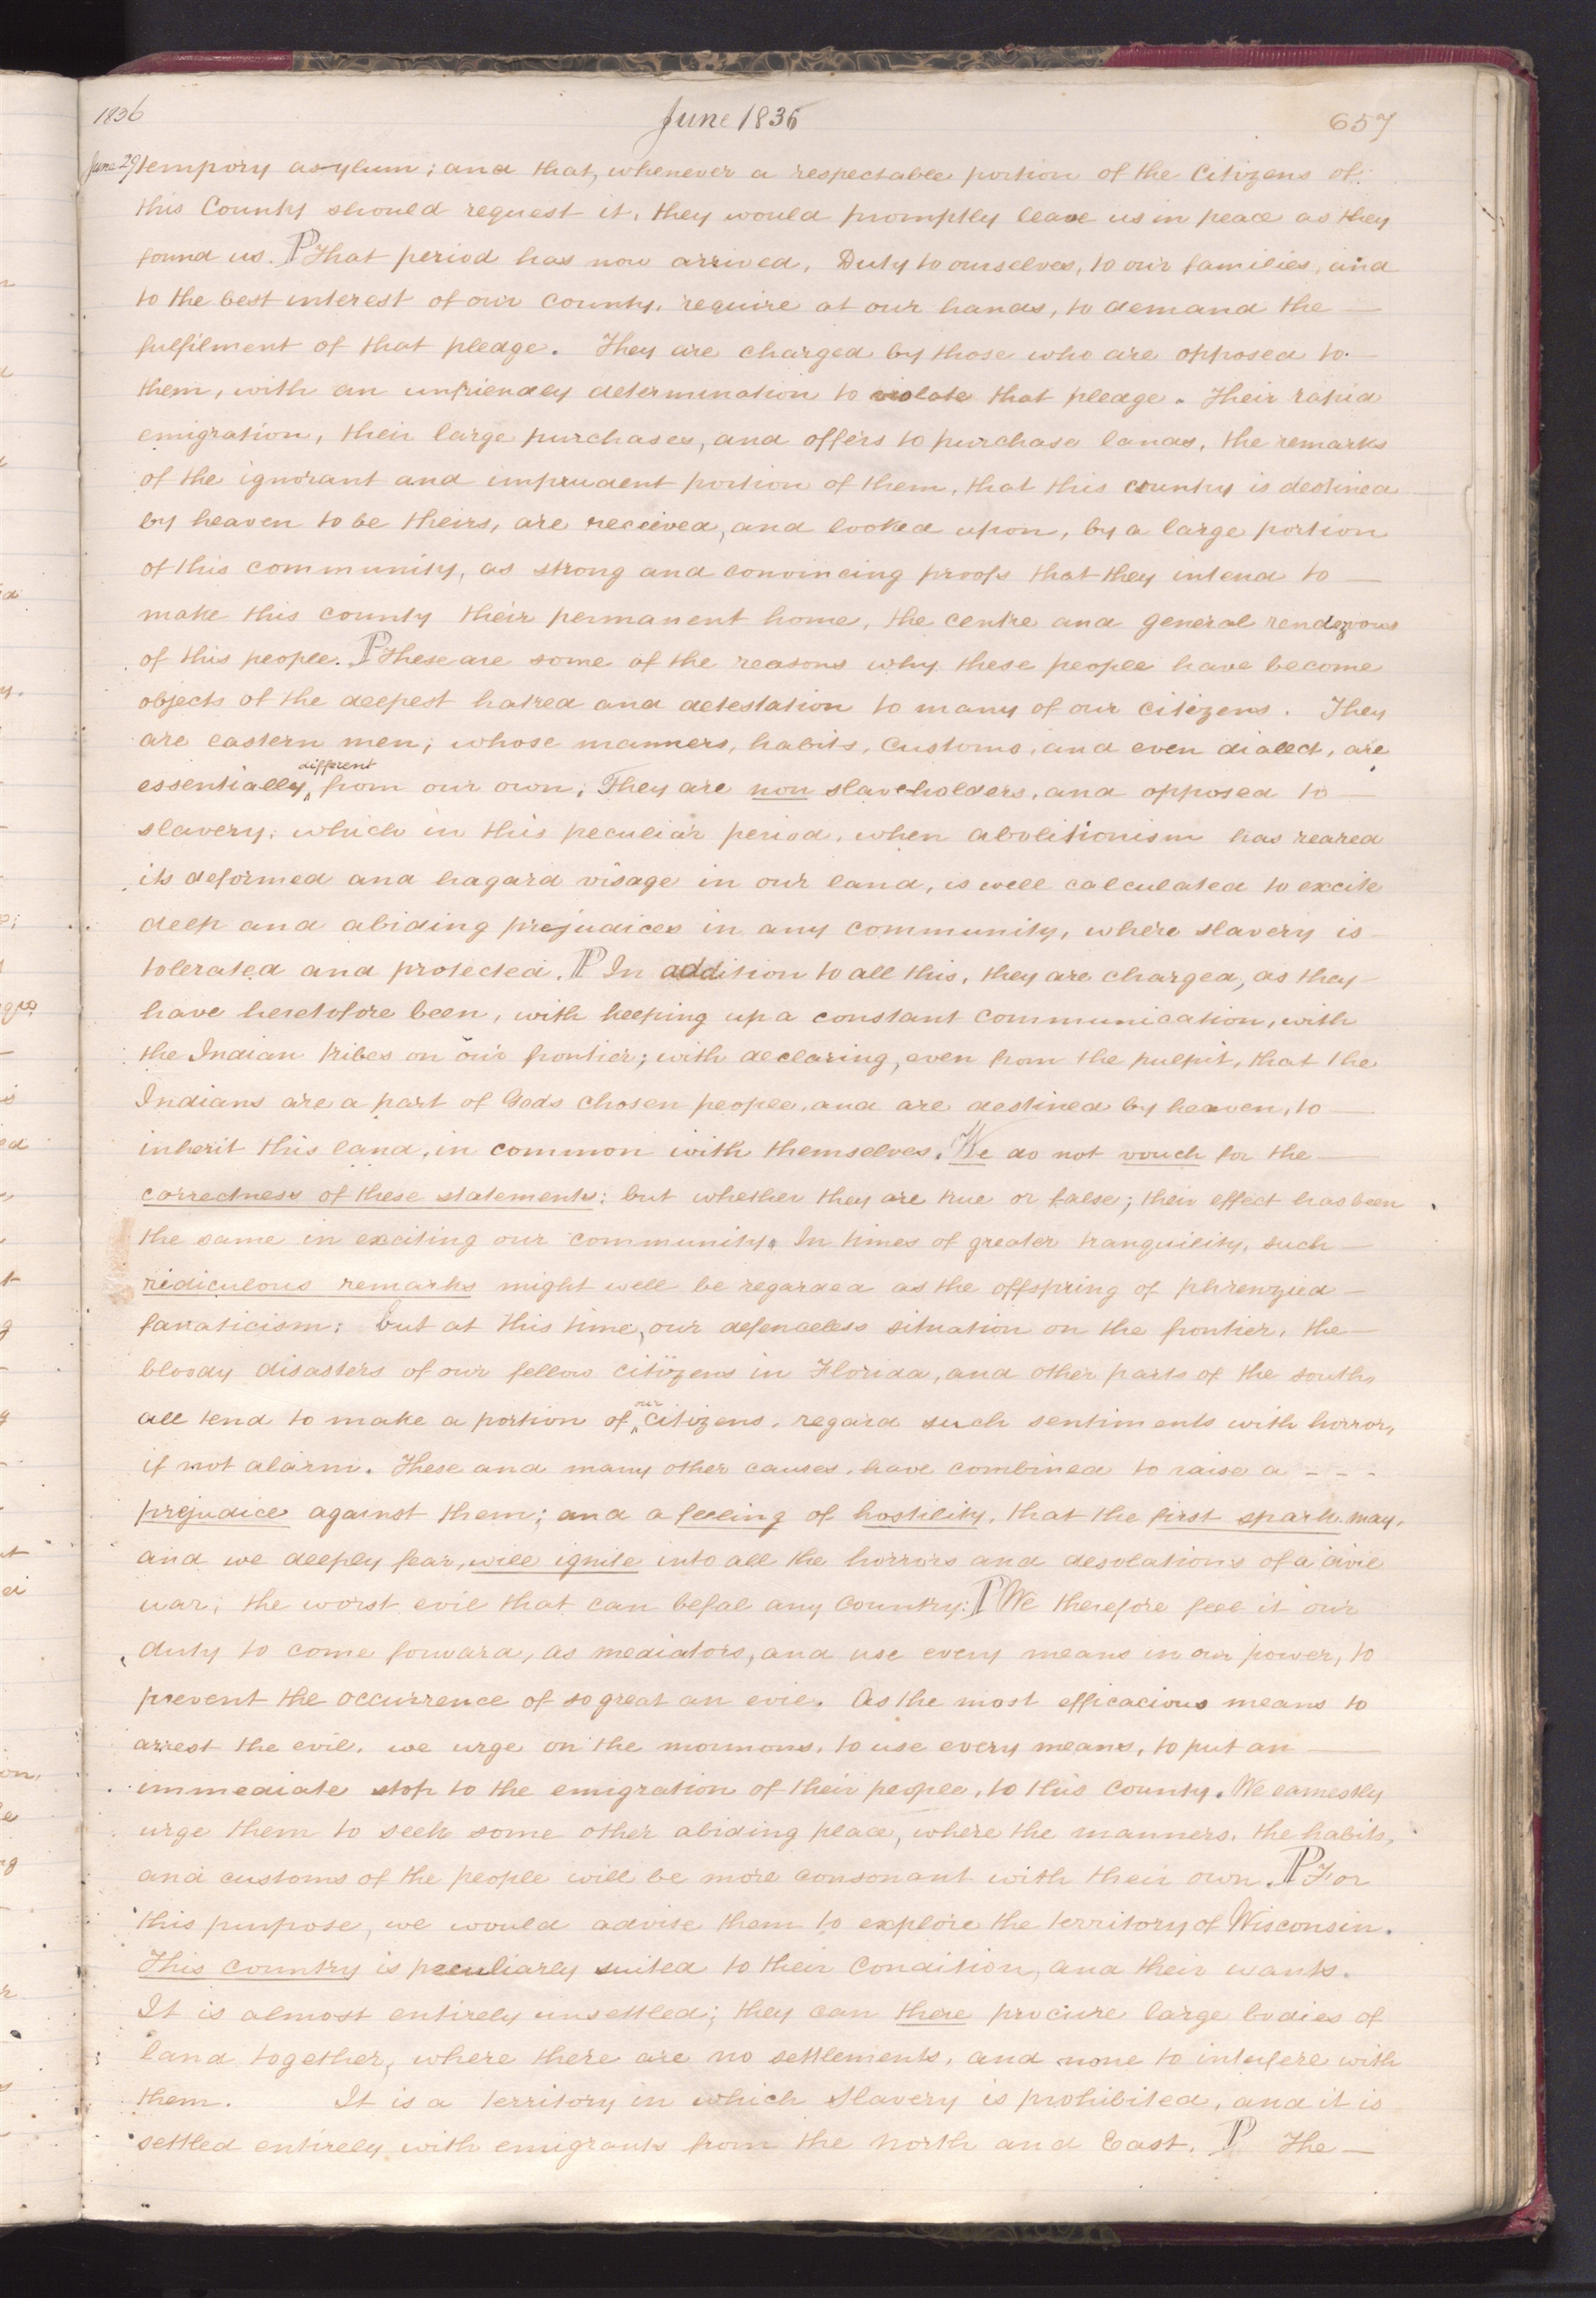 1836 June 1836 657
June 29 tempory asylum; and that, whenever a respectable portion of the Citizens of
this County should request it, they would promptly leave us in peace as they
found us. P That period has now arrived, Duty to ourselves, to our families, and
to the best interest of our county, require at our hands, to demand the —
fulfilment of that pledge. They are charged by those who are opposed to —
them, with an unfriendly determination to violate that pledge. Their rapid
emigration, their large purchases, and offers to purchase lands, the remarks
of the ignorant and imprudent portion of them, that this country is destined
by heaven to be theirs, are received, and looked upon, by a large portion
of this community, as strong and convincing proofs that they intend to —
make this county their permanent home, the centre and general rendezvous
of this people. P These are some of the reasons why these people have become
objects of the deepest hatred and detestation to many of our citizens. They
are eastern men; whose manners, habits, customs, and even dialect, are
essentially different from our own; They are non slaveholders, and opposed to —
slavery; which in this peculiar period, when abolitionism has reared
its deformed and hagard visage in our land, is well calculated to excite
deep and abiding prejudices in any community, where slavery is
tolerated and protected. P In addition to all this, they are charged, as they
have heretofore been, with keeping up a constant communication, with
the Indian tribes on our frontier; with declaring, even from the pulpit, that the
Indians are a part of Gods chosen people, and are destined by heaven, to —
inherit this land, in common with themselves. We do not vouch for the —
correctness of these statements; but whether they are true or false; their effect has been
the same in exciting our community. In times of greater tranquility, such —
ridiculous remarks might well be regarded as the offspring of phrenzied —
fanaticism; but at this time, our defenceless situation on the frontier, the —
bloody disasters of our fellow citizens in Florida, and other parts of the south,
all tend to make a portion of our citizens, regard such sentiments with horror,
if not alarm. These and many other causes, have combined to raise a - - -
prejudice against them; and a feeling of hostility, that the first spark may,
and we deeply fear, will ignite into all the horrors and desolations of a civil
war; the worst evil that can befal any country: P We therefore feel it our
duty to come forward, as mediators, and use every means in our power, to
prevent the occurrence of so great an evil. As the most efficacious means to
arrest the evil, we urge on the mormons, to use every means, to put an —
immediate stop to the emigration of their people, to this county. We earnestly
urge them to seek some other abiding place, where the manners, the habits,
and customs of the people will be more consonant with their own. P For
this purpose, we would advise them to explore the territory of Wisconsin.
This country is peculiarly suited to their condition, and their wants.
It is almost entirely unsettled; they can there procure large bodies of
land together, where there are no settlements, and none to interfere with
them. It is a territory in which slavery is prohibited, and it is
settled entirely with emigrants from the North and East. P The —